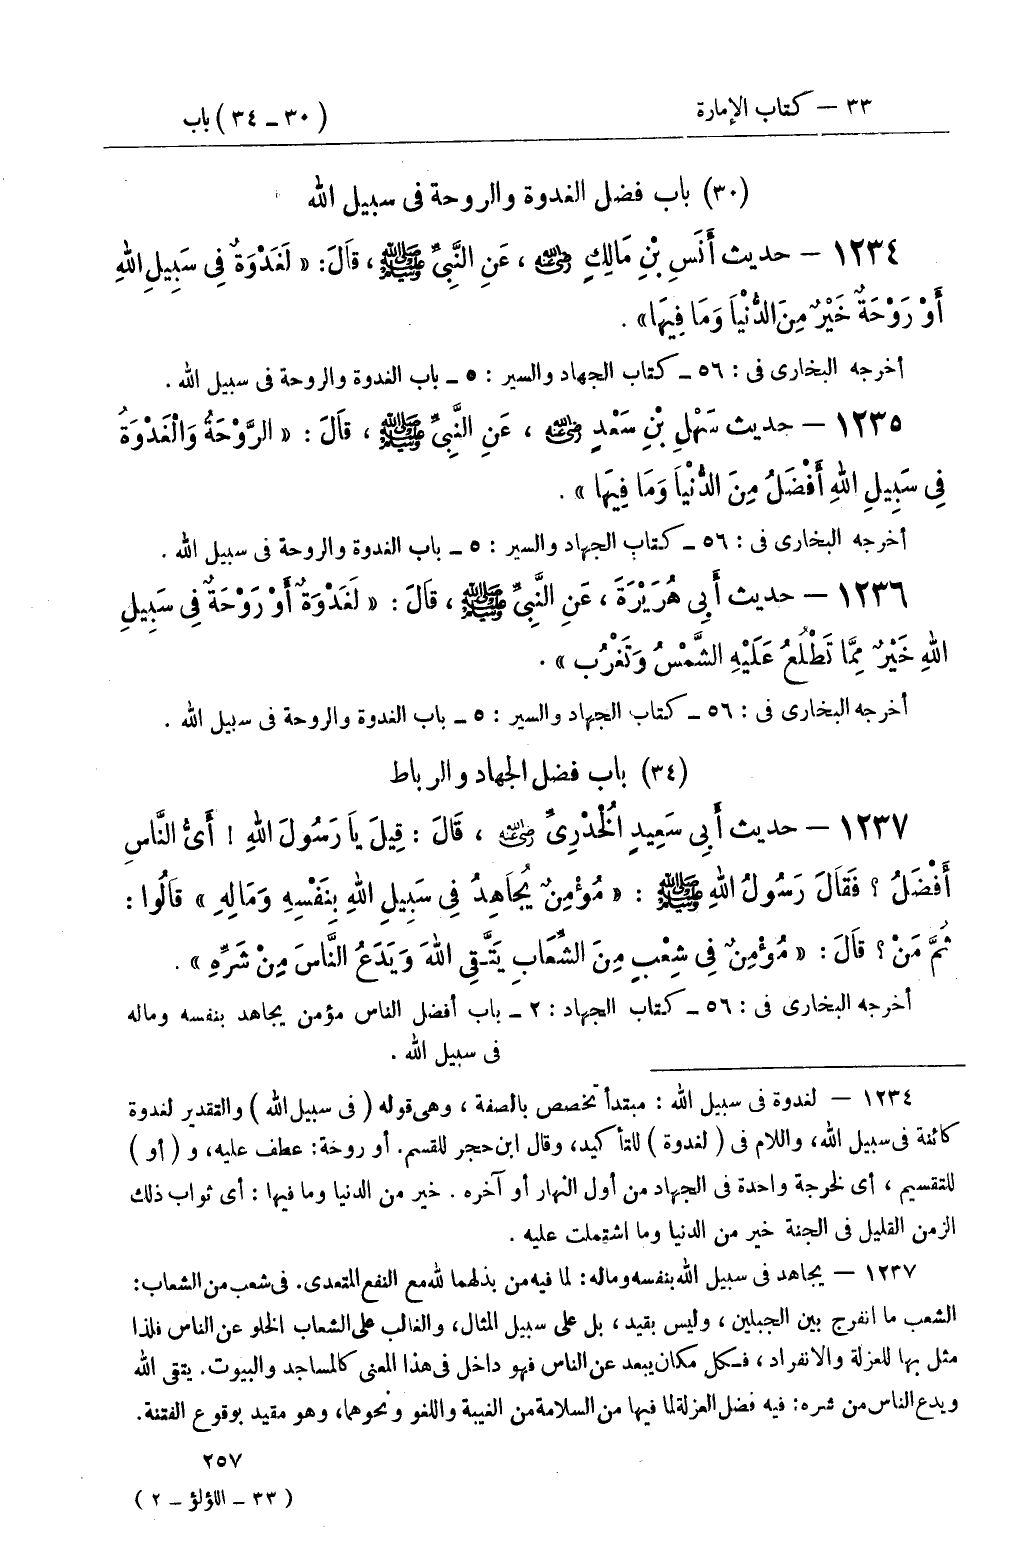 ٣٣ – كتاب الإمارة
(٣٠ – ٣٤) باب
(٣٠) باب فضل الغدوة والروحة فى سبيل الله
١٢٣٤ – حديث أَنَسِ بْنِ مَالِكٍ رضي الله عنه ، عَنِ النَّبِىِّ ﷺ ، قَالَ : « لَغَدْوَةٌ فِى سَبِيلِ اللهِ
أَوْ رَوْحَةٌ خَيْرٌ مِنَ الدُّنْيَا وَمَا فِيهَا» .
أخرجه البخارى فى : ٥٦ ـ كتاب الجهاد والسير : ٥ ـ باب الغدوة والروحة فى سبيل الله .
١٢٣٥ – حديث سَهْلِ بْنِ سَعْدٍ رضي الله عنه ، عَنِ النَّبِىِّ ﷺ ، قَالَ : « الرَّوْحَةُ وَالْغَدْوَةُ
فِى سَبِيلِ اللهِ أَفْضَلُ مِنَ الدُّنْيَا وَمَا فِيهَا » .
أخرجه البخارى فى : ٥٦ ـ كتاب الجهاد والسير : ٥ ـ باب الغدوة والروحة فى سبيل الله .
١٢٣٦ – حديث أَبِى هُرَيْرَةَ ، عَنِ النَّبِىِّ ﷺ ، قَالَ : « لَغَدْوَةٌ أَوْ رَوْحَةٌ فِى سَبِيلِ
اللهِ خَيْرٌ مِمَّا تَطْلُعُ عَلَيْهِ الشَّمْسُ وَتَغْرُب » .
أخرجه البخارى فى : ٥٦ ـ كتاب الجهاد والسير : ٥ ـ باب الغدوة والروحة فى سبيل الله .
(٣٤) باب فضل الجهاد والرباط
١٢٣٧ – حديث أَبِى سَعِيدٍ الْخُدْرِىِّ رضي الله عنه ، قَالَ : قِيلَ يَا رَسُولَ اللهِ ! أَىُّ النَّاسِ
أَفْضَلُ ؟ فَقَالَ رَسُولُ اللهِ ﷺ : « مُؤْمِنٌ يُجَاهِدُ فِى سَبِيلِ اللهِ بِنَفْسِهِ وَمَالِهِ » قَالُوا :
ثُمَّ مَنْ ؟ قَالَ : « مُؤْمِنٌ فِى شِعْبٍ مِنَ الشِّعَابِ يَتَّقِى اللهَ وَيَدَعُ النَّاسَ مِنْ شَرِّهِ » .
أخرجه البخارى فى : ٥٦ ـ كتاب الجهاد : ٢ ـ باب أفضل الناس مؤمن يجاهد بنفسه وماله
فى سبيل الله .
١٢٣٤ – لغدوة فى سبيل الله : مبتدأ تخصص بالصفة ، وهى قوله ( فى سبيل الله ) والتقدير لغدوة
كائنة فى سبيل الله، واللام فى ( لغدوة ) للتأكيد، وقال ابن حجر للقسم. أو روحة: عطف عليه، و ( أو )
للتقسيم ، أى لخرجة واحدة فى الجهاد من أول النهار أو آخره . خير من الدنيا وما فيها : أى ثواب ذلك
الزمن القليل فى الجنة خير من الدنيا وما اشتملت عليه .
١٢٣٧ – يجاهد فى سبيل الله بنفسه وماله: لما فيه من بذلهما لله مع النفع المتعدى. فى شعب من الشعاب:
الشعب ما انفرج بين الجبلين ، وليس بقيد ، بل على سبيل المثال، والغالب على الشعاب الخلو عن الناس فلذا
مثل بها للعزلة والانفراد ، فكل مكان يبعد عن الناس فهو داخل فى هذا المعنى كالمساجد والبيوت. يتقى الله
ويدع الناس من شره: فيه فضل العزلة لما فيها من السلامة من الغيبة واللغو ونحوهما، وهو مقيد بوقوع الفتنة.
٢٥٧
( ٣٣ – اللؤلؤ – ٢ )